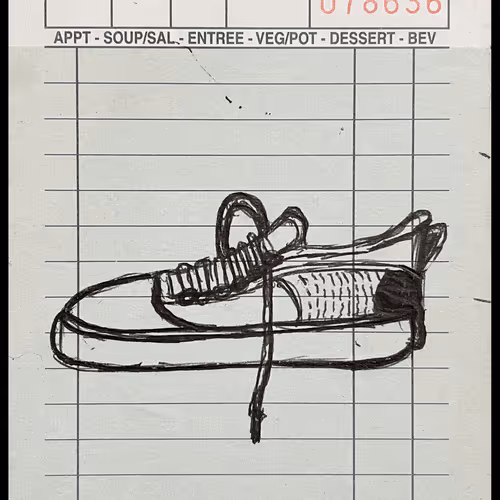 078636
APPT - SOUP/SAL - ENTREE - VEG/POT - DESSERT - BEV